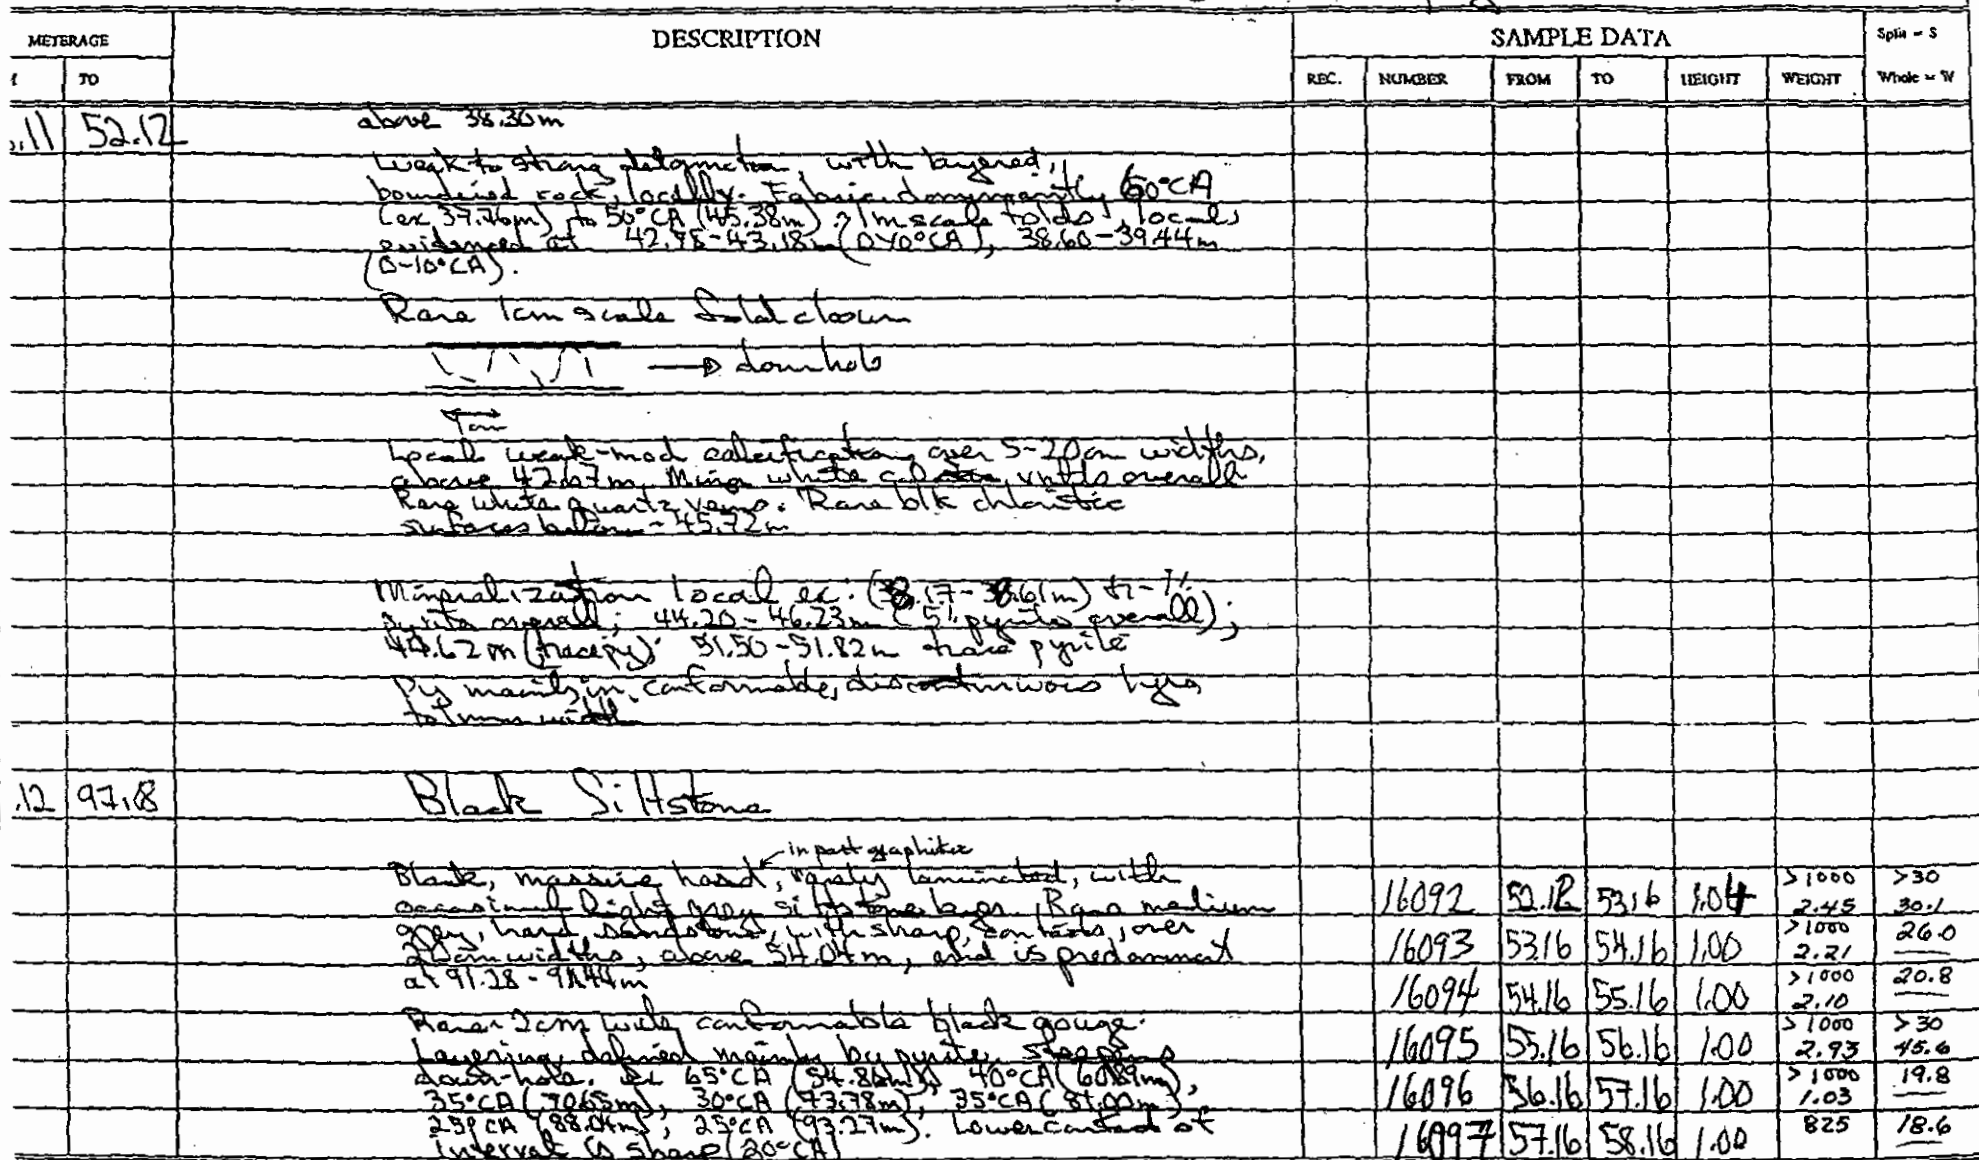 METERAGE DESCRIPTION SAMPLE DATA Split = S
TO REC. NUMBER FROM TO HEIGHT WEIGHT Whole = W
.11 52.12 above 38.30m
Weak to strong with layered,
boundined rock, locally. Fabric dominantly 60°CA
(ex 37.76m) to 50°CA (45.38m). 1m scale folds, locally
evidenced at 42.98-43.18m (0-10°CA), 38.60-39.44m
(0-10°CA).
Rare 1cm scale fold closure
→ downhole
1cm
Local weak-mod calcification over 5-20cm widths,
above 42.67m. Minor white vnlts overall
Rare white quartz veins. Rare blk chloritic
surfaces below ~45.72m
Mineralization local ex: (38.17-38.61m) tr-1%
pyrite overall; 44.20-46.23m (5% pyrite overall);
49.62m (trace py); 51.50-51.82m trace pyrite
Py mainly in conformable, discontinuous lyrs
to 1mm width
.12 97.18 Black Siltstone
in part graphitic
Black, massive hard, laminated, with
occasional light grey siltstone layer. Rare medium
grey, hard sandstone, with sharp contacts, over
20cm widths, above 54.04m, and is predominant
at 91.28-91.44m
Rare 2cm wide conformable black gouge.
Layering, defined mainly by pyrite, steepens
down-hole. ex 65°CA (54.86m), 40°CA (60.89m),
35°CA (70.65m), 30°CA (73.78m), 35°CA (87.00m),
25°CA (88.04m), 25°CA (93.27m). Lower contact of
interval is sharp (20°CA)
16092 52.12 53.16 1.04 >1000 >30
2.45 30.1
16093 53.16 54.16 1.00 >1000 26.0
2.21
16094 54.16 55.16 1.00 >1000 20.8
2.10
16095 55.16 56.16 1.00 >1000 >30
2.93 45.6
16096 56.16 57.16 1.00 >1000 19.8
1.03
16097 57.16 58.16 1.00 825 18.6